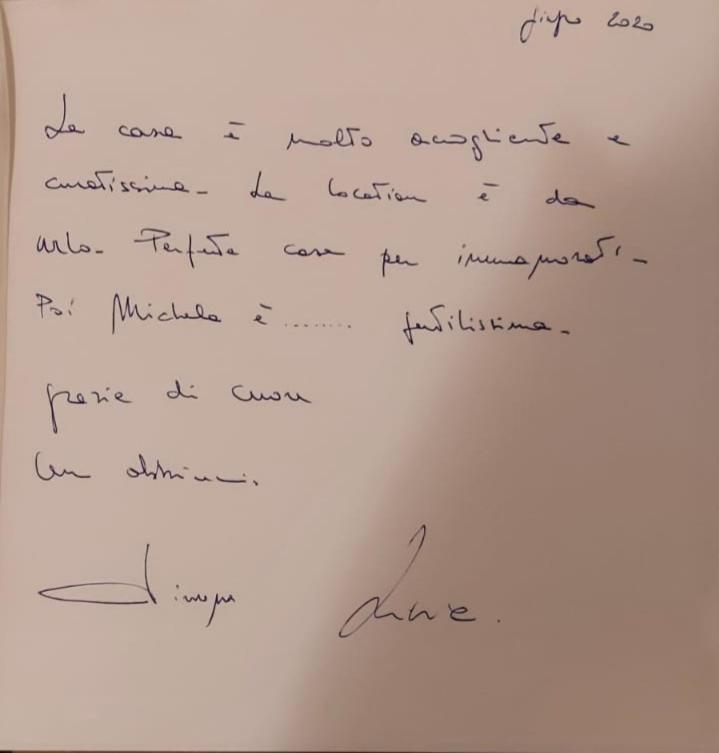 2020
La casa è molto accogliente e
curatissima - La location è da
urlo - Perfetta casa per innamorati -
Poi Michela è ........ gentilissima -
grazie di cuore
Un abbraccio.